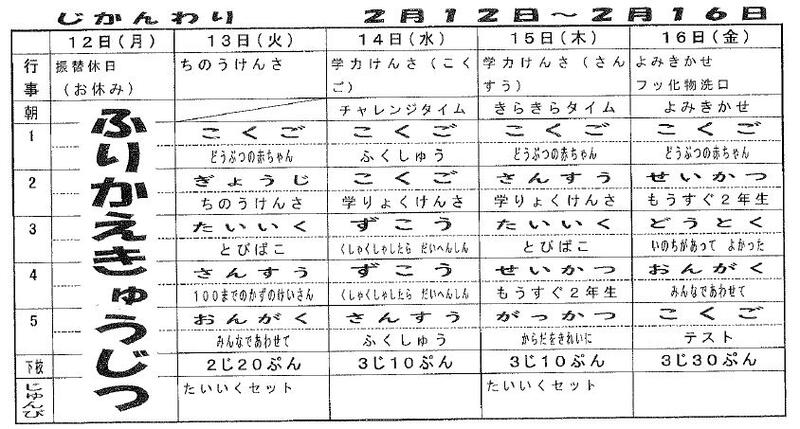 じかんわり　２月１２日～２月１６日
12日(月) 13日(火) 14日(水) 15日(木) 16日(金)
行事 振替休日 ちのうけんさ 学力けんさ（こく 学力けんさ（さん よみきかせ
(お休み) ご） すう） フッ化物洗口
朝 チャレンジタイム きらきらタイム よみきかせ
ふりかえきゅうじつ
1 こくご こくご こくご こくご
どうぶつの赤ちゃん ふくしゅう どうぶつの赤ちゃん どうぶつの赤ちゃん
2 ぎょうじ こくご さんすう せいかつ
ちのうけんさ 学りょくけんさ 学りょくけんさ もうすぐ２年生
3 たいいく ずこう たいいく どうとく
とびばこ くしゃくしゃしたら だいへんしん とびばこ いのちがあって よかった
4 さんすう ずこう せいかつ おんがく
100までのかずのけいさん くしゃくしゃしたら だいへんしん もうすぐ２年生 みんなであわせて
5 おんがく さんすう がっかつ こくご
みんなであわせて ふくしゅう からだをきれいに テスト
下校 2じ20ぷん 3じ10ぷん 3じ10ぷん 3じ30ぷん
じゅんび たいいくセット たいいくセット